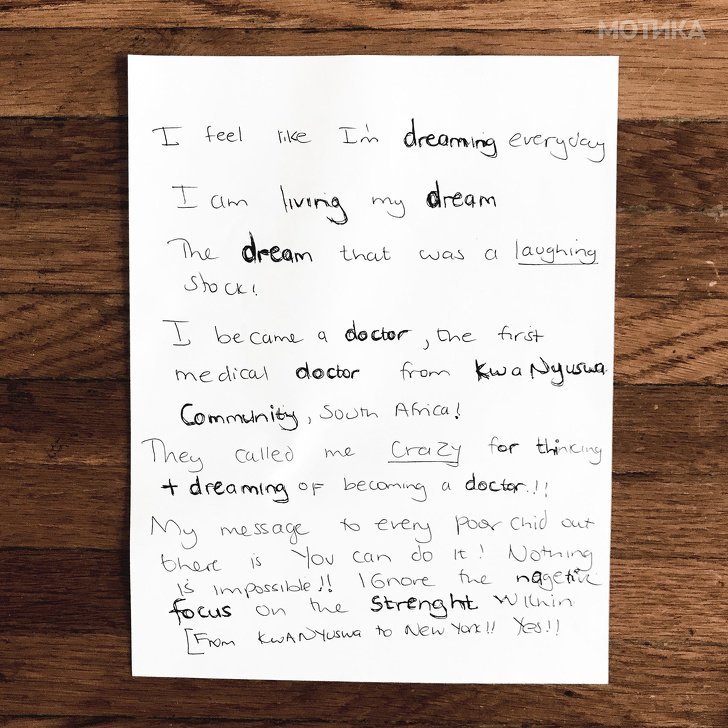 МОТИКА
I feel like I'm dreaming everyday
I am living my dream
The dream that was a laughing
stock!
I became a doctor, the first
medical doctor from KwaNyuswa
Community, South Africa!
They called me Crazy for thinking
+ dreaming OF becoming a doctor!!
My message to every poor chid out
there is You can do it! Nothing
is impossible!! IGnore the nagetive
focus on the Strenght Within
[From KwANYuswa to New York!! Yes!!